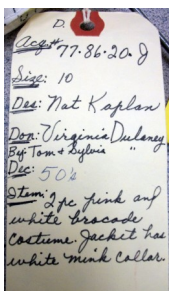 D.
Acq# 77.86.20.J
Size: 10
Des: Nat Kaplan
Don: Virginia Dulaney
By: Tom & Sylvia "
Dec: 50's
Item: 2 pc pink and
white brocade
costume. Jacket has
white mink collar.